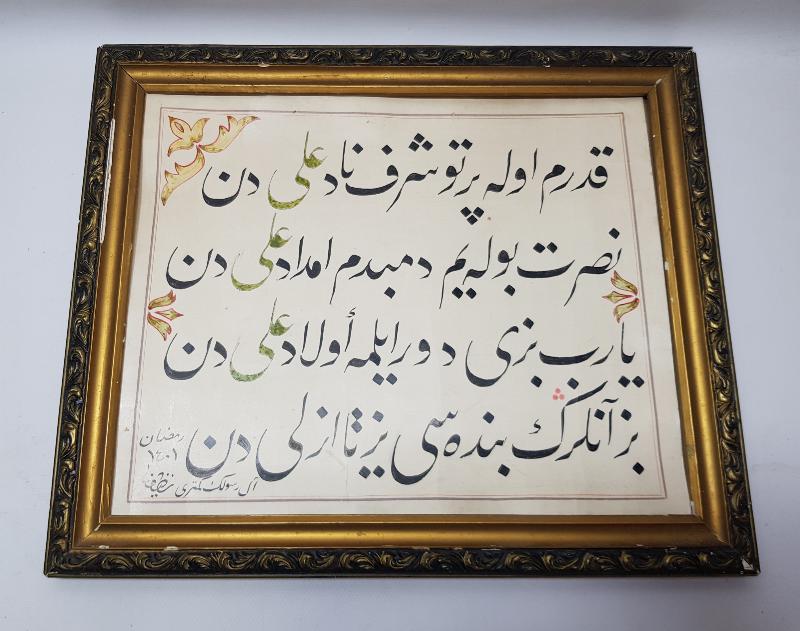 قدرم اوله پرتو شرف ناد علی دن
نصرت بوله یم دمبدم امداد علی دن
یارب بزی دور ایلمه أولاد علی دن
بز آنلرڭ بنده سی یز تا ازلی دن
رمضان
١٤٠١
آل رسولڭ كمتری